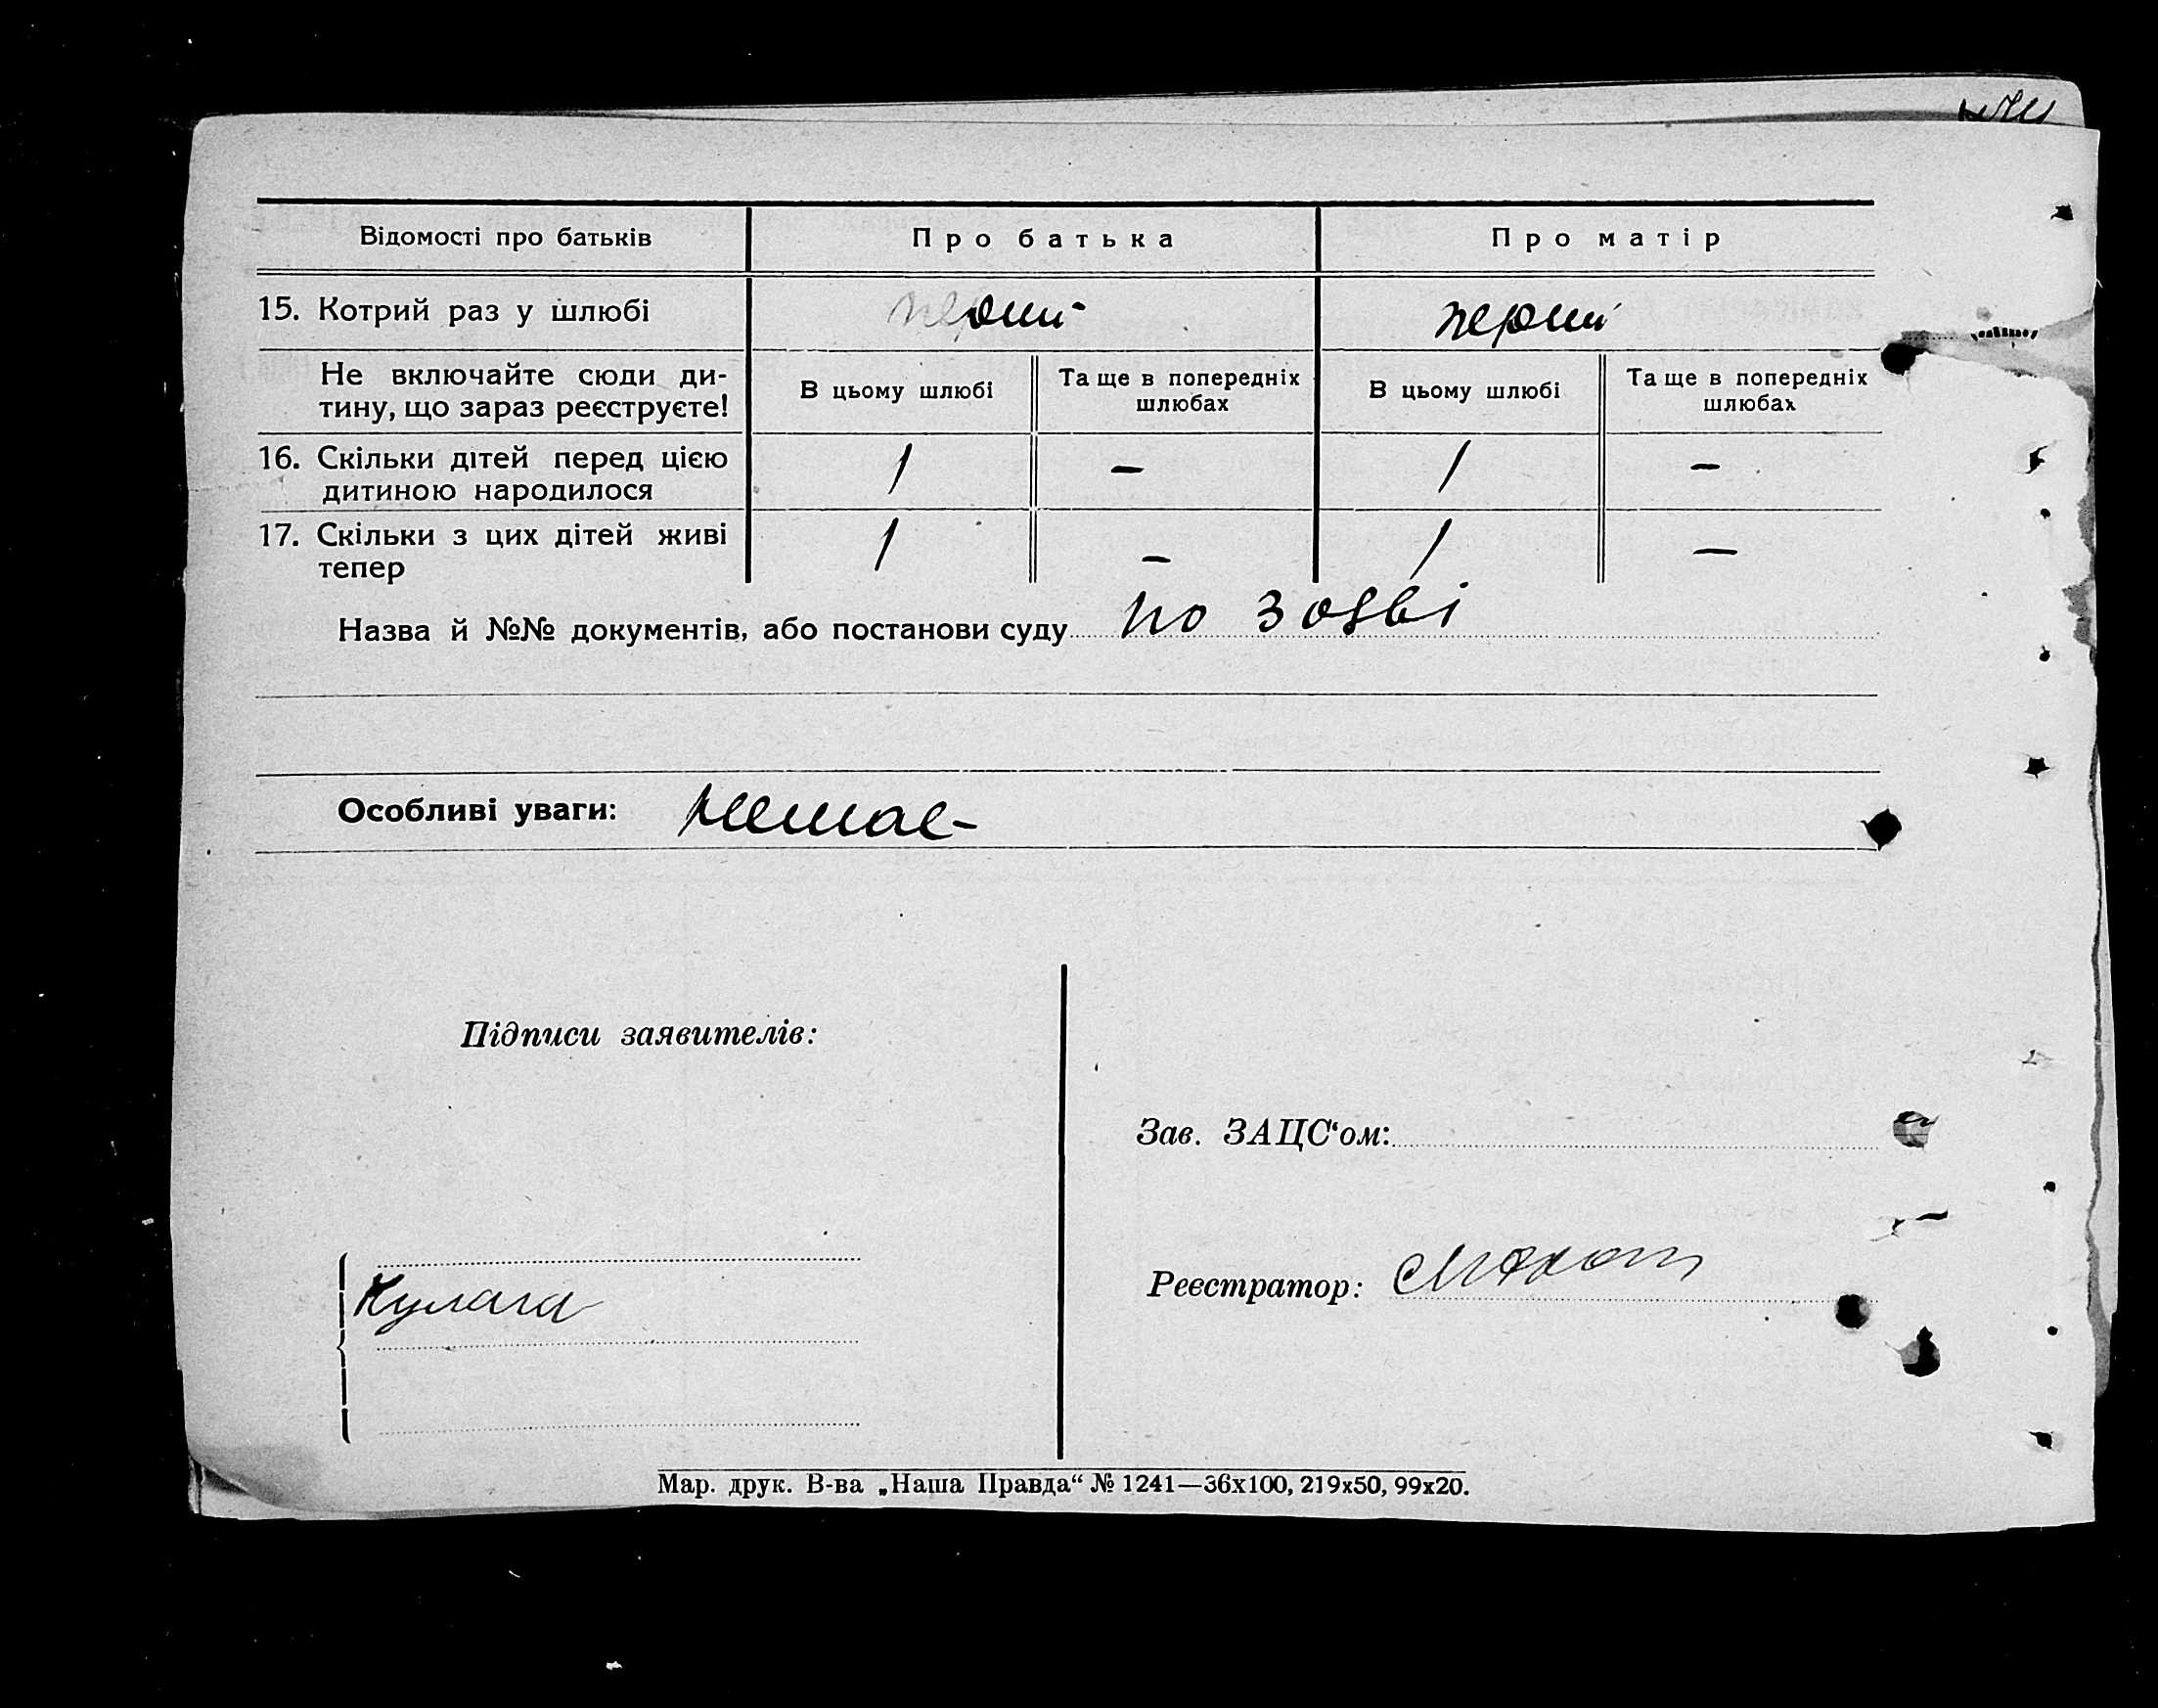 Відомості про батьків Про батька Про матір
15. Котрий раз у шлюбі перший перший
Не включайте сюди ди-
тину, що зараз реєструєте!
В цьому шлюбі Та ще в попередніх
шлюбах
В цьому шлюбі Та ще в попередніх
шлюбах
16. Скільки дітей перед цією
дитиною народилося
1 – 1 –
17. Скільки з цих дітей живі
тепер
1 – 1 –
Назва й №№ документів, або постанови суду по зояві
Особливі уваги: немає
Підписи заявителів:
Зав. ЗАЦС‘ом:
Реєстратор:
Кулага
Мар. друк. В-ва „Наша Правда“ № 1241—36х100, 219х50, 99х20.